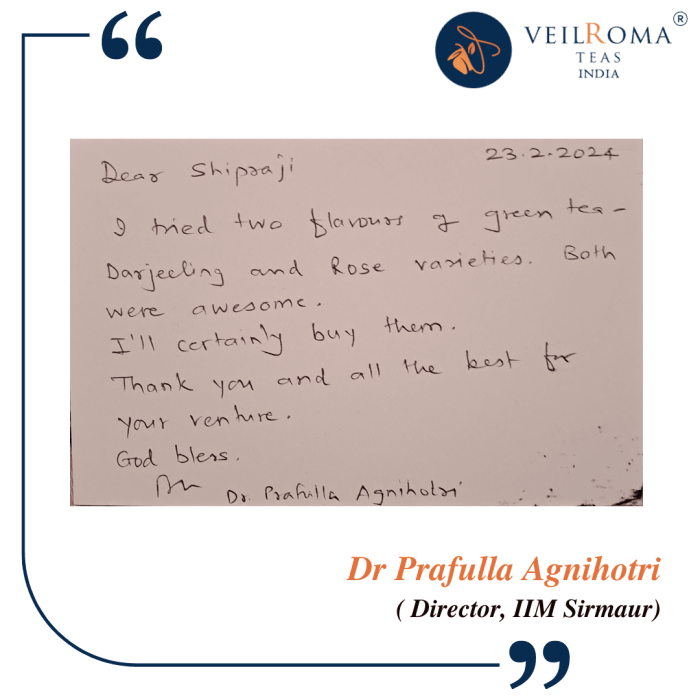 “
VEILROMA®
TEAS
INDIA
23.2.2024
Dear Shipraji
I tried two flavours of green tea-
Darjeeling and Rose varieties. Both
were awesome.
I'll certainly buy them.
Thank you and all the best for
your venture.
God bless.
Dr. Prafulla Agnihotri
Dr Prafulla Agnihotri
( Director, IIM Sirmaur)
”